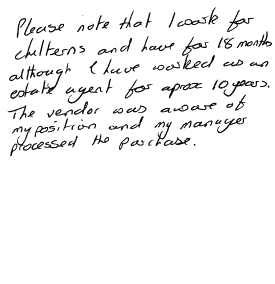 Please note that I work for
chilterns and have for 18 months
although I have worked as an
estate agent for aprox 10 years.
The vendor was aware of
my position and my manager
processed the purchase.